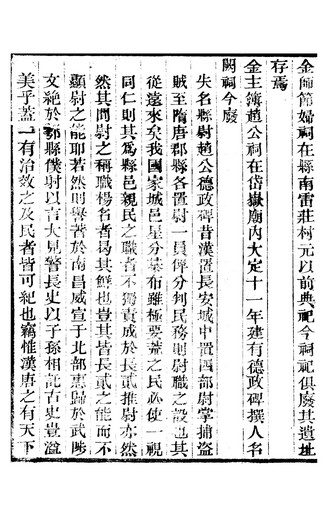 金師節婦祠在縣南雷莊村元以前典祀今祠祀俱廢其遺址
存焉
金主簿趙公祠在岱嶽廟内大定十一年建有德政碑撰人名
闕祠今廢
失名縣尉趙公德政碑昔漢置長安城中置四部尉掌捕盗
賊至隋唐郡縣各置尉一員俾分判民務則尉職之設也其
從遠來矣我國家城邑星分棊布雖極要荒之民必使一視
同仁則其爲縣邑親民之職者不獨責成於長貳推尉亦然
然其間尉之稱職揚名者曷其鮮也豈其皆長貳之能而不
顯尉之能耶若然則譽著於南昌威宣於北部惠歸於武陟
文絶於鄠縣僕尉以吉大兒警長史以子孫相託古史豈溢
美乎蓋一有治效之及民者皆可紀也竊惟漢唐之有天下